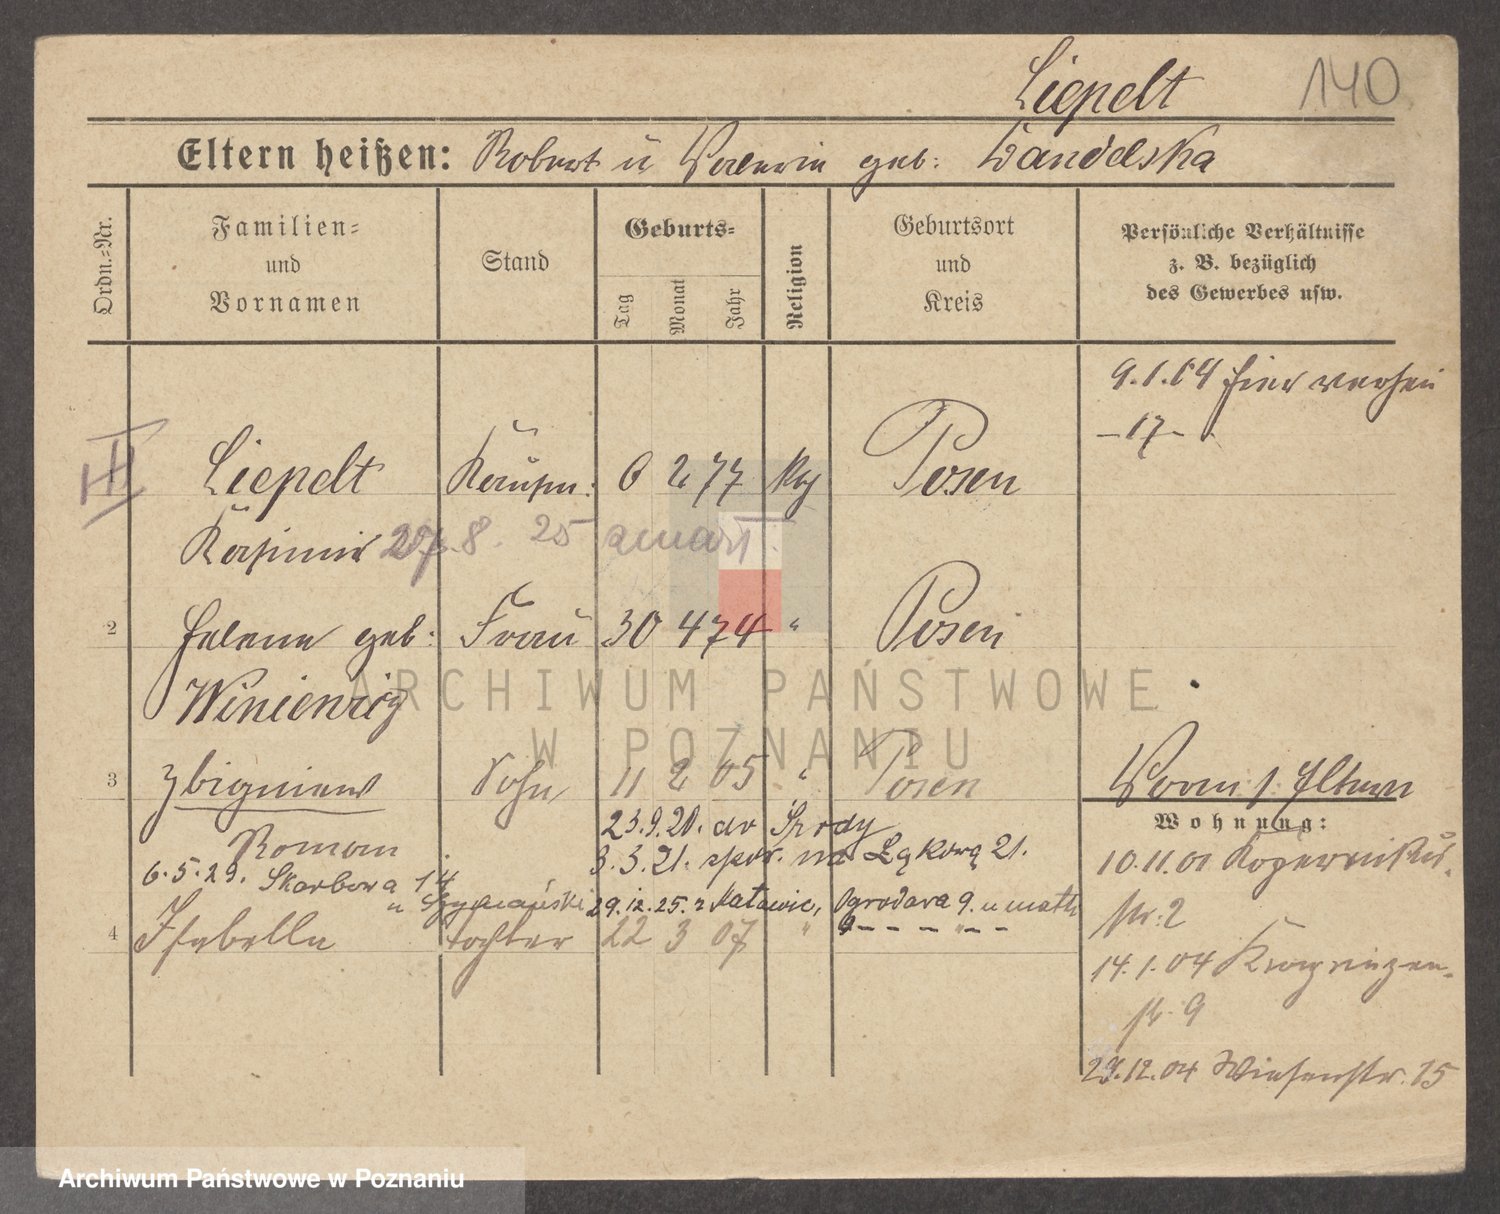 Liepelt 140
Eltern heißen: Robert u Valeria geb: Wandelska
Ordn.-Nr.
Familien-
und
Vornamen
Stand
Geburts-
Tag
Monat
Jahr
Religion
Geburtsort
und
Kreis
Persönliche Verhältnisse
z. B. bezüglich
des Gewerbes usw.
9.1.04
-17-
III
Liepelt Kaufm: 6 2 77 Posen
Kasimir 27.8.25
2 Helene geb: Frau 30 4 74 " Posen
Winiewicz
3 Zbigniew Sohn 11 2 05 " Posen
Roman
23.9.20. do Środy
3.3.21. na Łąkową 21.
6.5.29. Skarbowa 14
u Szymański 29.12.25. z Katowic, Ogrodowa 9. u matki
4 Isabella tochter 22 3 07 "
Wohnung:
10.11.01 Kopernikus
str: 2
14.1.04
str. 9
29.12.04 Wiesenstr. 15
ARCHIWUM PAŃSTWOWE
W POZNANIU
Archiwum Państwowe w Poznaniu